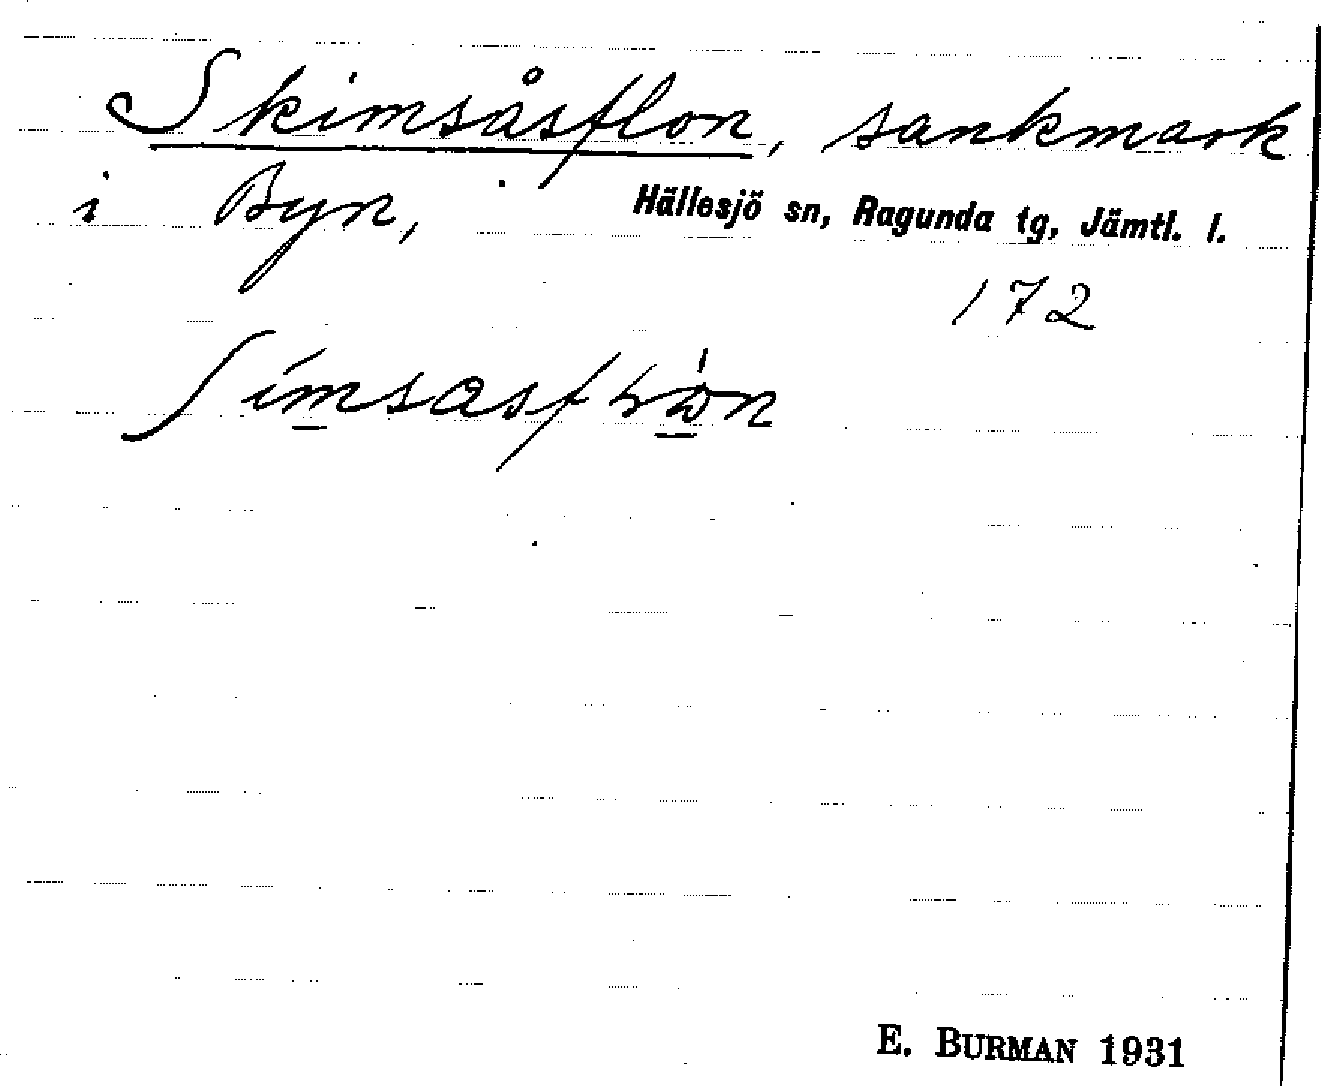 Skimsåsflon, sankmark
i Byn, Hällesjö sn, Ragunda tg, Jämtl. l.
172
E. BURMAN 1931